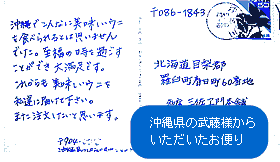 沖縄でこんなに美味しいウニ
を食べられるとは思いません
でした。至福の時を過ごす
ことができ大満足です。
これからも美味しいウニを
私達に届けて下さい。
また注文したいと思います。
〒904-
〒086-1843
北海道目梨郡
羅臼町春日町60番地
沖縄県の武藤様から
いただいたお便り